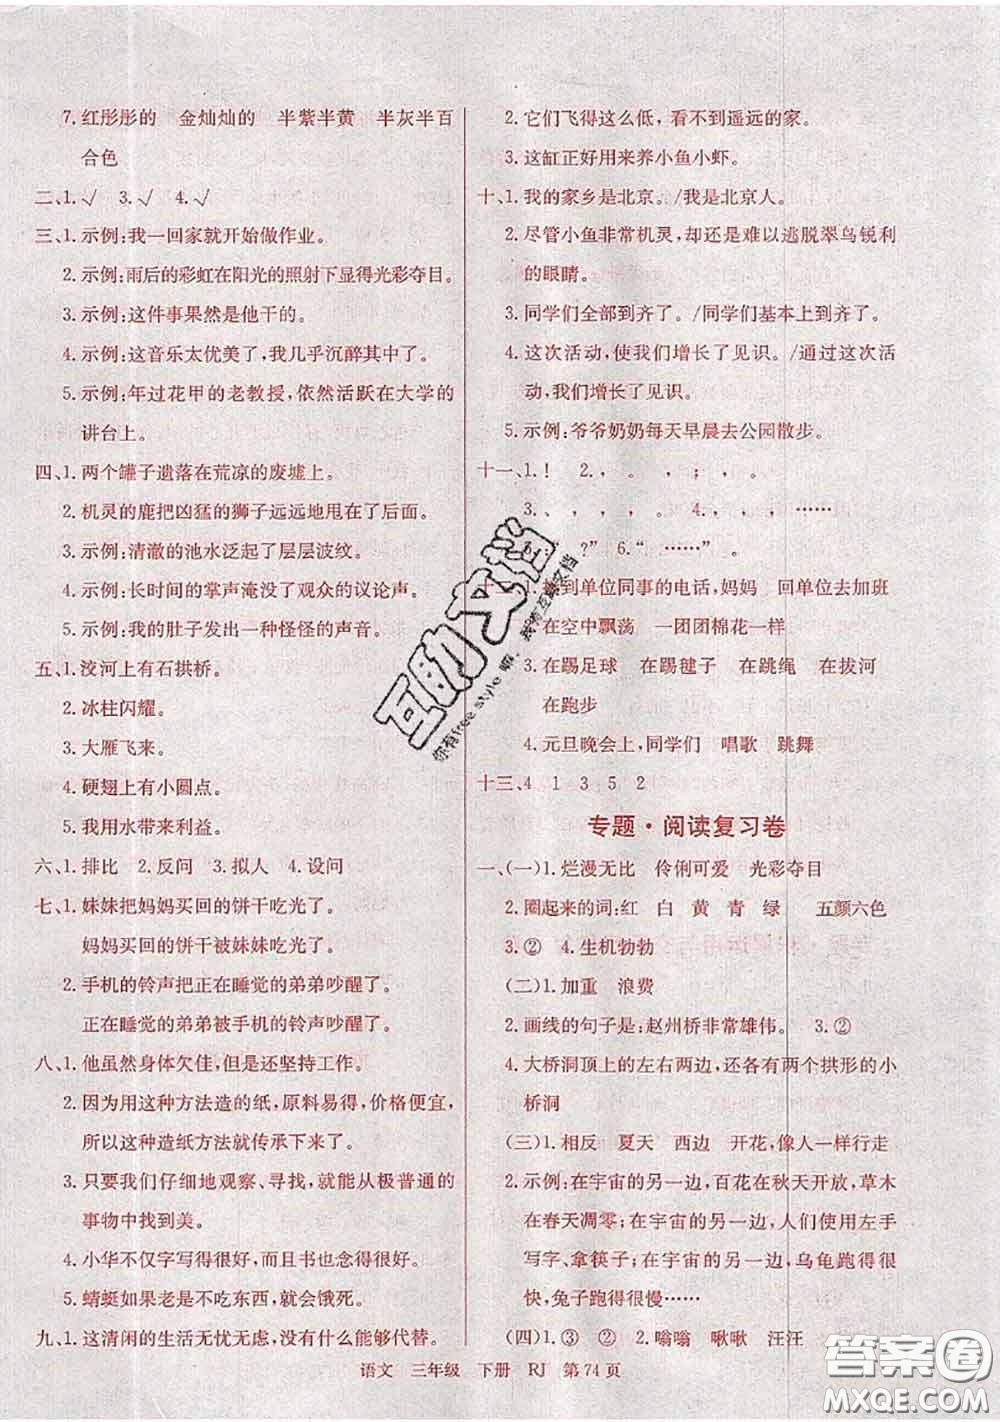 7. 红彤彤的　金灿灿的　半紫半黄　半灰半百
合色
二、1. √　3. √　4. √
三、1. 示例:我一回家就开始做作业。
2. 示例:雨后的彩虹在阳光的照射下显得光彩夺目。
3. 示例:这件事果然是他干的。
4. 示例:这音乐太优美了,我几乎沉醉其中了。
5. 示例:年过花甲的老教授,依然活跃在大学的
讲台上。
四、1. 两个罐子遗落在荒凉的废墟上。
2. 机灵的鹿把凶猛的狮子远远地甩在了后面。
3. 示例:清澈的池水泛起了层层波纹。
4. 示例:长时间的掌声淹没了观众的议论声。
5. 示例:我的肚子发出一种怪怪的声音。
五、1. 洨河上有石拱桥。
2. 冰柱闪耀。
3. 大雁飞来。
4. 硬翅上有小圆点。
5. 我用水带来利益。
六、1. 排比　2. 反问　3. 拟人　4. 设问
七、1. 妹妹把妈妈买回的饼干吃光了。
妈妈买回的饼干被妹妹吃光了。
2. 手机的铃声把正在睡觉的弟弟吵醒了。
正在睡觉的弟弟被手机的铃声吵醒了。
八、1. 他虽然身体欠佳,但是还坚持工作。
2. 因为用这种方法造的纸,原料易得,价格便宜,
所以这种造纸方法就传承下来了。
3. 只要我们仔细地观察、寻找,就能从极普通的
事物中找到美。
4. 小华不仅字写得很好,而且书也念得很好。
5. 蜻蜓如果老是不吃东西,就会饿死。
九、1. 这清闲的生活无忧无虑,没有什么能够代替。
2. 它们飞得这么低,看不到遥远的家。
3. 这缸正好用来养小鱼小虾。
十、1. 我的家乡是北京。/我是北京人。
2. 尽管小鱼非常机灵,却还是难以逃脱翠鸟锐利
的眼睛。
3. 同学们全部到齐了。/同学们基本上到齐了。
4. 这次活动,使我们增长了见识。/通过这次活
动,我们增长了见识。
5. 示例:爷爷奶奶每天早晨去公园散步。
十一、1. !　2. ,　。　,　;　,　。
3. 、　,　,　,　。　4. ,　,　……
?”　6. “　……”　。
到单位同事的电话,妈妈　回单位去加班
在空中飘荡　一团团棉花一样
3. 在踢足球　在踢毽子　在跳绳　在拔河
在跑步
4. 元旦晚会上,同学们　唱歌　跳舞
十三、4　1　3　5　2
专题·阅读复习卷
一、(一)1. 烂漫无比　伶俐可爱　光彩夺目
2. 圈起来的词:红　白　黄　青　绿　五颜六色
3. ②　4. 生机勃勃
(二)1. 加重　浪费
2. 画线的句子是:赵州桥非常雄伟。　3. ②
4. 大桥洞顶上的左右两边,还各有两个拱形的小
桥洞
(三)1. 相反　夏天　西边　开花,像人一样行走
2. 示例:在宇宙的另一边,百花在秋天开放,草木
在春天凋零;在宇宙的另一边,人们使用左手
写字、拿筷子;在宇宙的另一边,乌龟跑得很
快,兔子跑得很慢……
(四)1. ③　②　2. 嗡嗡　啾啾　汪汪
语文　三年级　下册　RJ　第74页
互助文档
你有free style 嘛,我有互助文档
答案圈
MXQE.COM